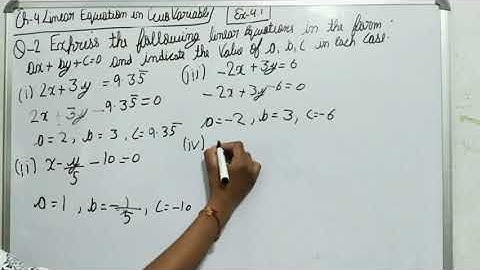 Ch-4 Linear Equation in two Variables Ex-4.1
Q-2 Express the following linear equations in the form
ax + by + c = 0 and indicate the Value of a, b, c in each case.
(i) 2x + 3y = 9.35̅
2x + 3y - 9.35̅ = 0
a = 2, b = 3, c = 9.35̅
(ii) x - y/5 - 10 = 0
a = 1, b = -1/5, c = -10
(iii) -2x + 3y = 6
-2x + 3y - 6 = 0
a = -2, b = 3, c = -6
(iv)